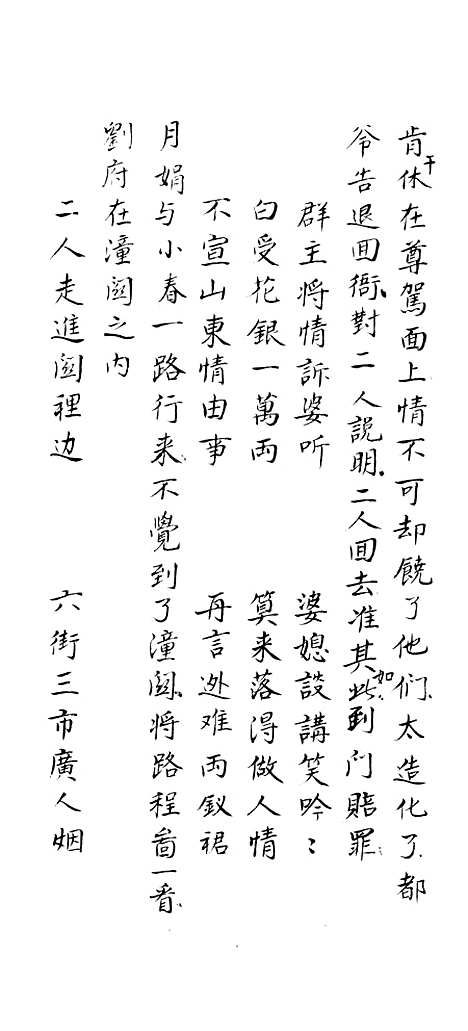 肯干休在尊駕面上情不可却饒了他们太造化了都
爷告退囬衙對二人説明二人囬去准其如此到门賠罪
群主将情訴婆听　婆媳談講笑吟〻
白受花銀一萬両　算来落得做人情
不宣山東情由事　再言逃难両釵裙
月娟与小春一路行来不覺到了潼関将路程啚一看
劉府在潼関之内
二人走進関裡边　六街三市廣人烟